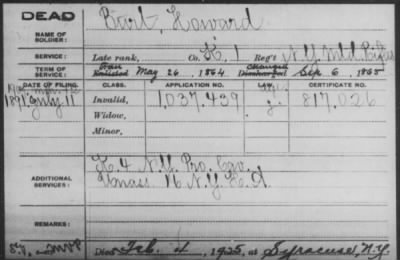 DEAD
NAME OF SOLDIER: Burt, Howard
SERVICE: Late rank, Co. K, 1 Reg't N.Y. Mtd Rifles
TERM OF SERVICE: Enlisted May 26, 1864 Discharged Sep 6, 1865
DATE OF FILING. CLASS. APPLICATION NO. LAW. CERTIFICATE NO.
1891 July 11 Invalid, 1,037,439 817,026
Widow,
Minor,
ADDITIONAL SERVICES: K. 4 N.Y. Pro. Cav.
Unass 16 N.Y. H.A.
REMARKS:
Died Feb. 4, 1925, at Syracuse, N.Y.